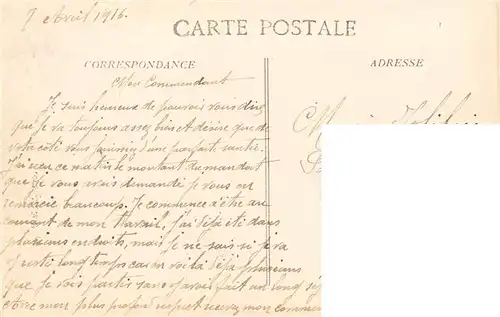 7 Avril 1916.
CARTE POSTALE
CORRESPONDANCE
ADRESSE
Mon Commandant
Je suis heureux de pouvoir vous dire
que je va toujours assez bien et désire que de
votre côté vous jouissiez d'une parfaite santé.
J'ai reçu ce matin le montant du mandat
que je vous avais demandé je vous en
remercie beaucoup. Je commence d'être au
courant de mon travail, j'ai déjà été dans
plusieurs endroits, mais je ne sais si je va
y resté longtemps car en voilà déjà plusieurs
que je vois partir sans avoir fait un long
Avec mon plus profond respect recevez mon